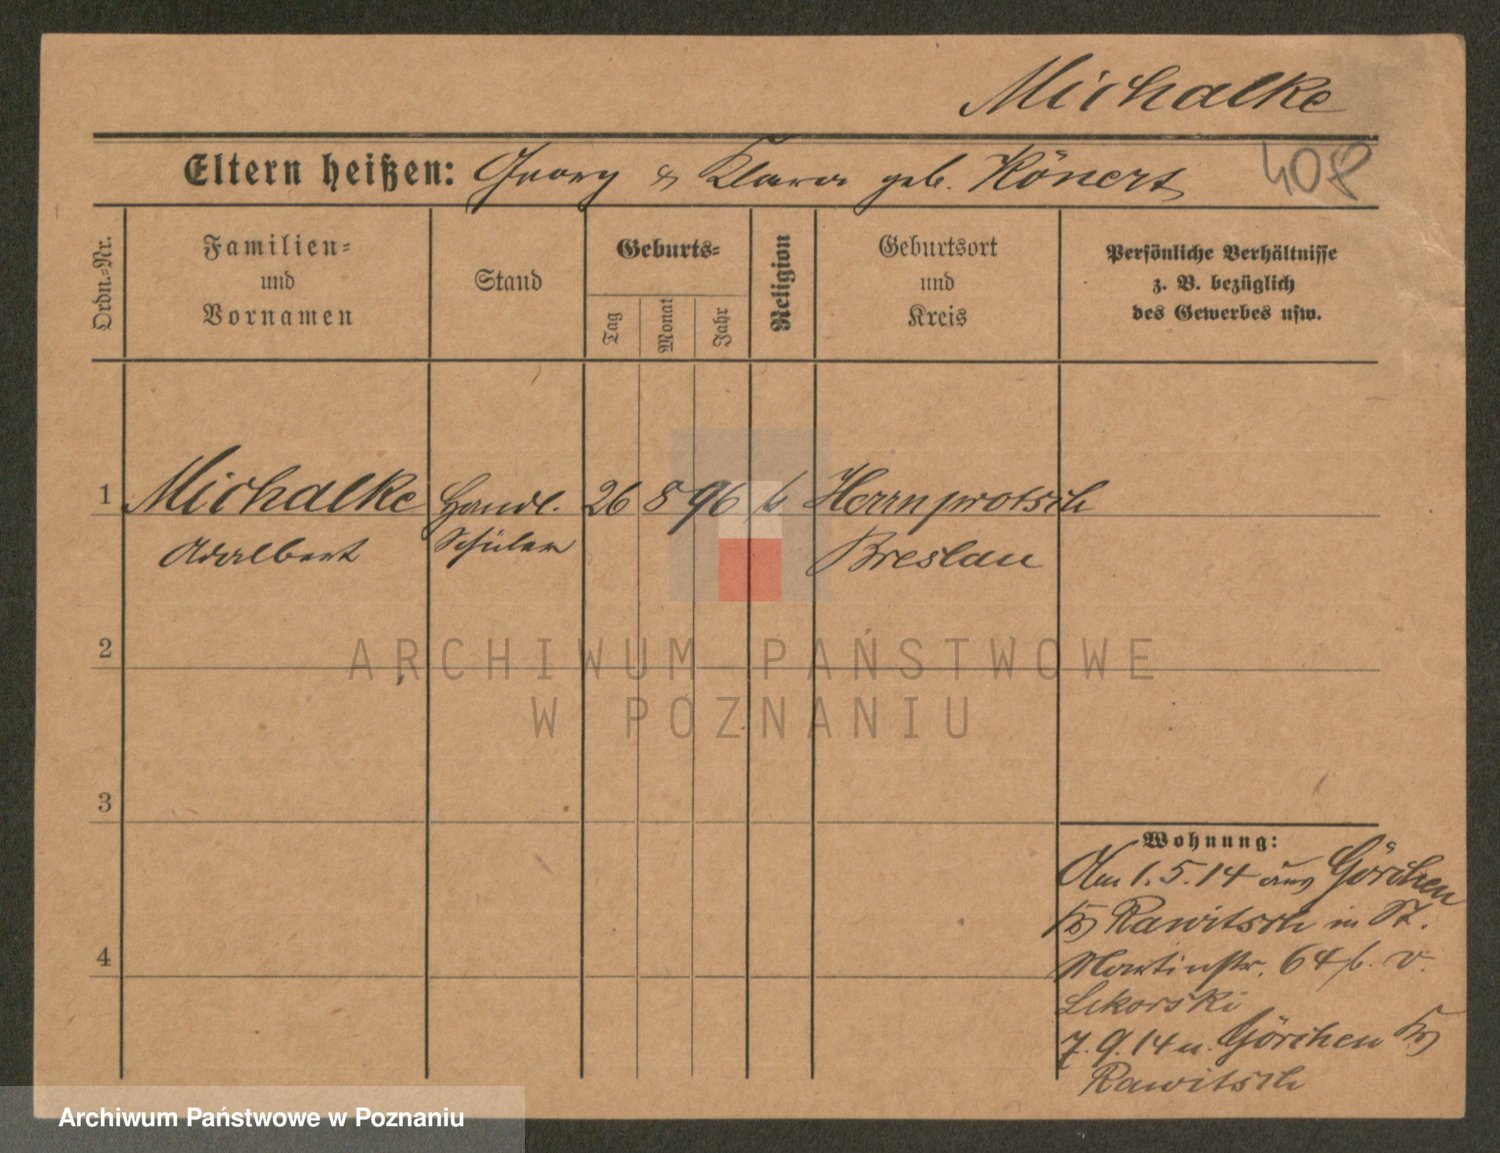 Michalke
Eltern heißen: Georg & Klara geb. Könert 408
Ordn.-Nr.
Familien-
und
Vornamen
Stand
Geburts-
Tag
Monat
Jahr
Religion
Geburtsort
und
Kreis
Persönliche Verhältnisse
z. B. bezüglich
des Gewerbes usw.
1 Michalke Handl. 26 8 96 k Herrnprotsch
Adalbert Schüler Breslau
2
3
4
Wohnung:
Am 1.5.14 aus Görchen
Kr Rawitsch in St.
Martinstr. 64 b. v.
7.9.14 n. Görchen Kr
Rawitsch
ARCHIWUM PAŃSTWOWE
W POZNANIU
Archiwum Państwowe w Poznaniu